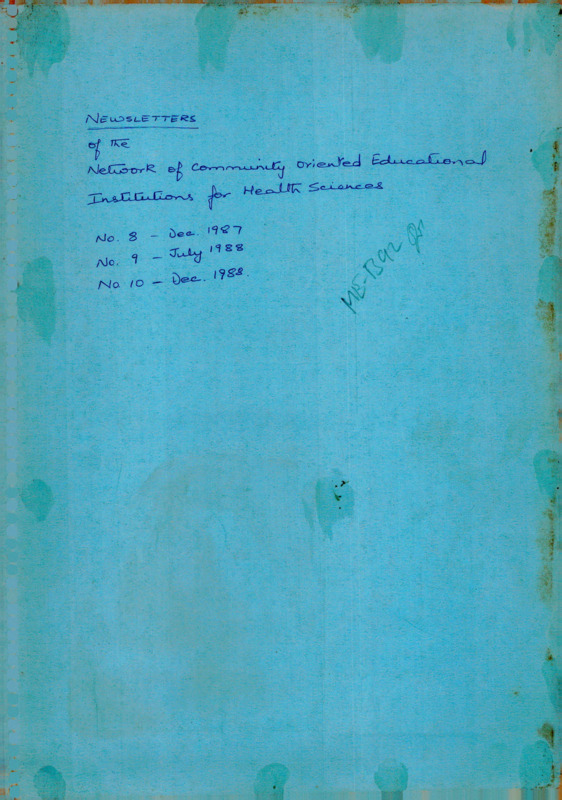 NEWSLETTERS
of the
Network of Community Oriented Educational
Institutions for Health Sciences
No. 8 - Dec. 1987
No. 9 - July 1988
No 10 - Dec. 1988.
ME-1392